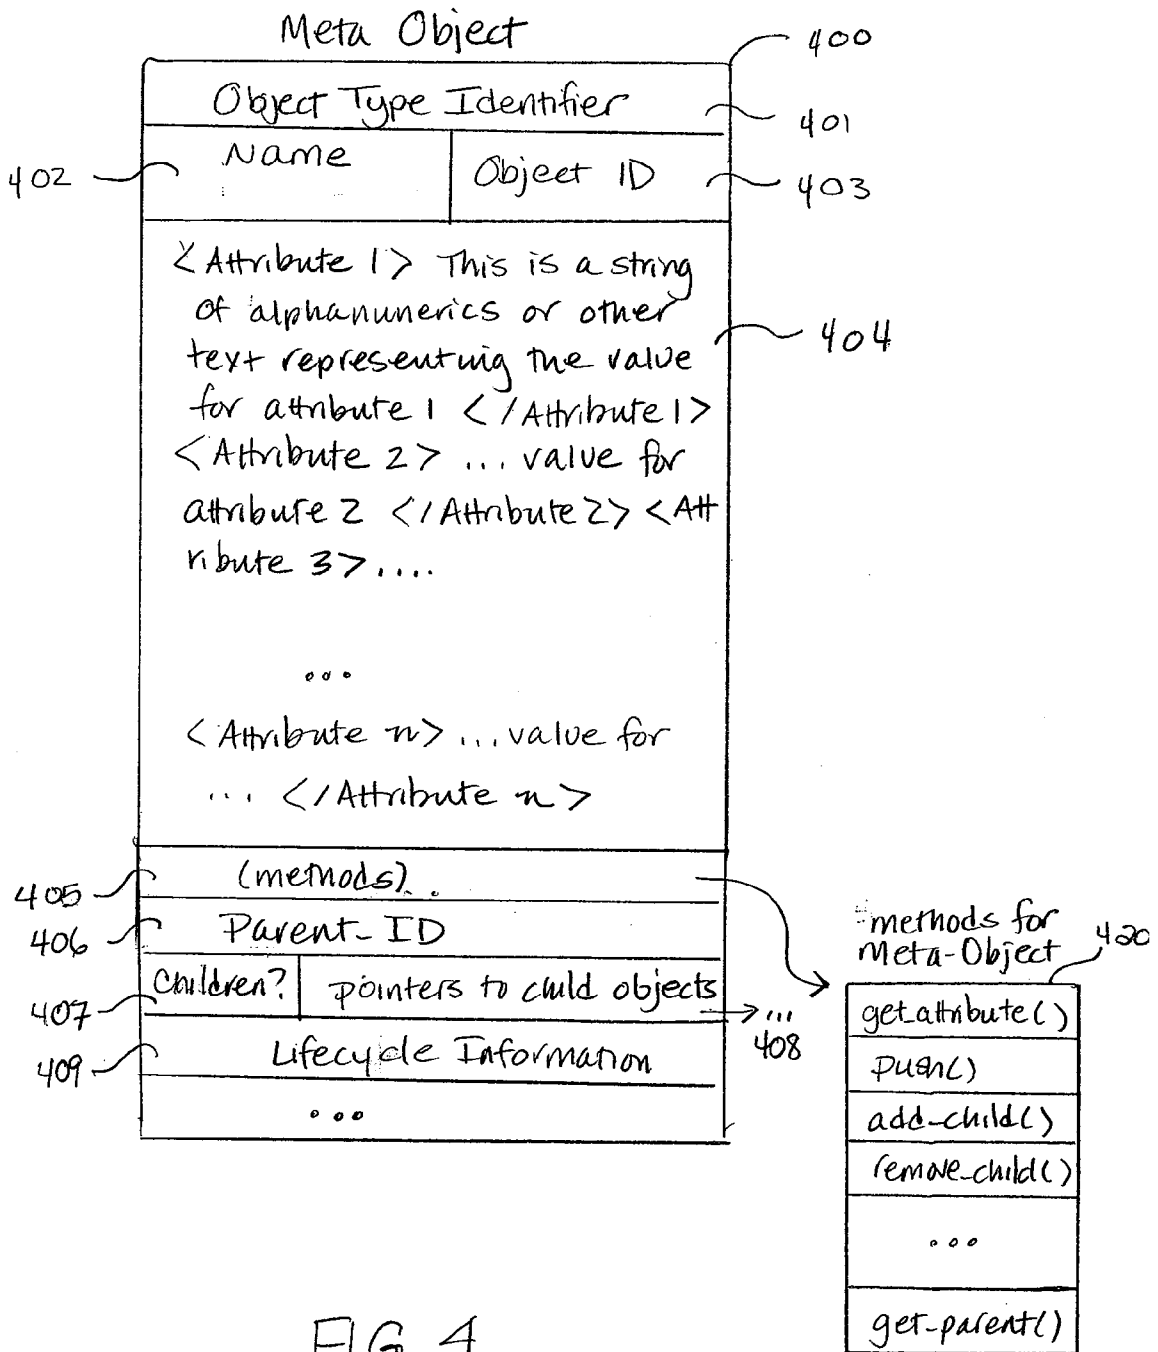 Meta Object
400
Object Type Identifier
401
402
Name
Object ID
403
<Attribute 1> This is a string
of alphanunerics or other
text representing the value
404
for attribute 1 </Attribute 1>
<Attribute 2> ... value for
attribute 2 </Attribute 2> <Att
ribute 3> ....
...
<Attribute n> ... value for
... </Attribute n>
405
(methods)
406
Parent_ID
407
Children?
pointers to child objects
...
408
409
Lifecycle Information
...
methods for
Meta-Object
420
get_attribute()
push()
add_child()
remove_child()
...
get_parent()
FIG 4